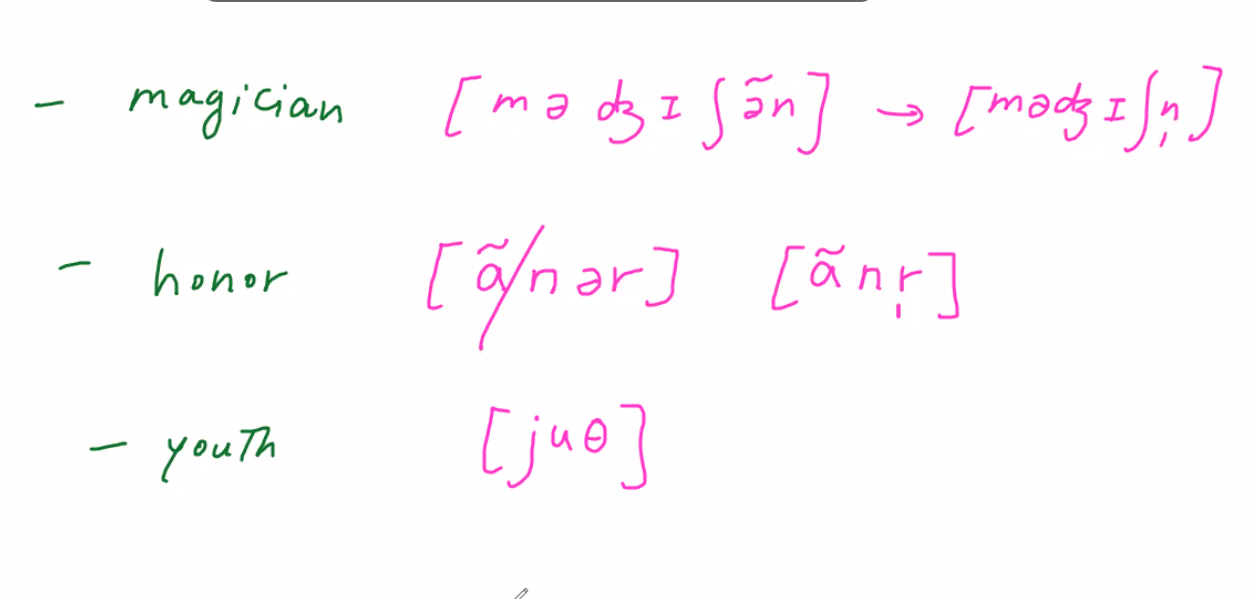 – magician [mədʒɪʃə̃n] → [mədʒɪʃn̩]
– honor [ɑ̃/nər] [ɑ̃nr̩]
– youth [juθ]